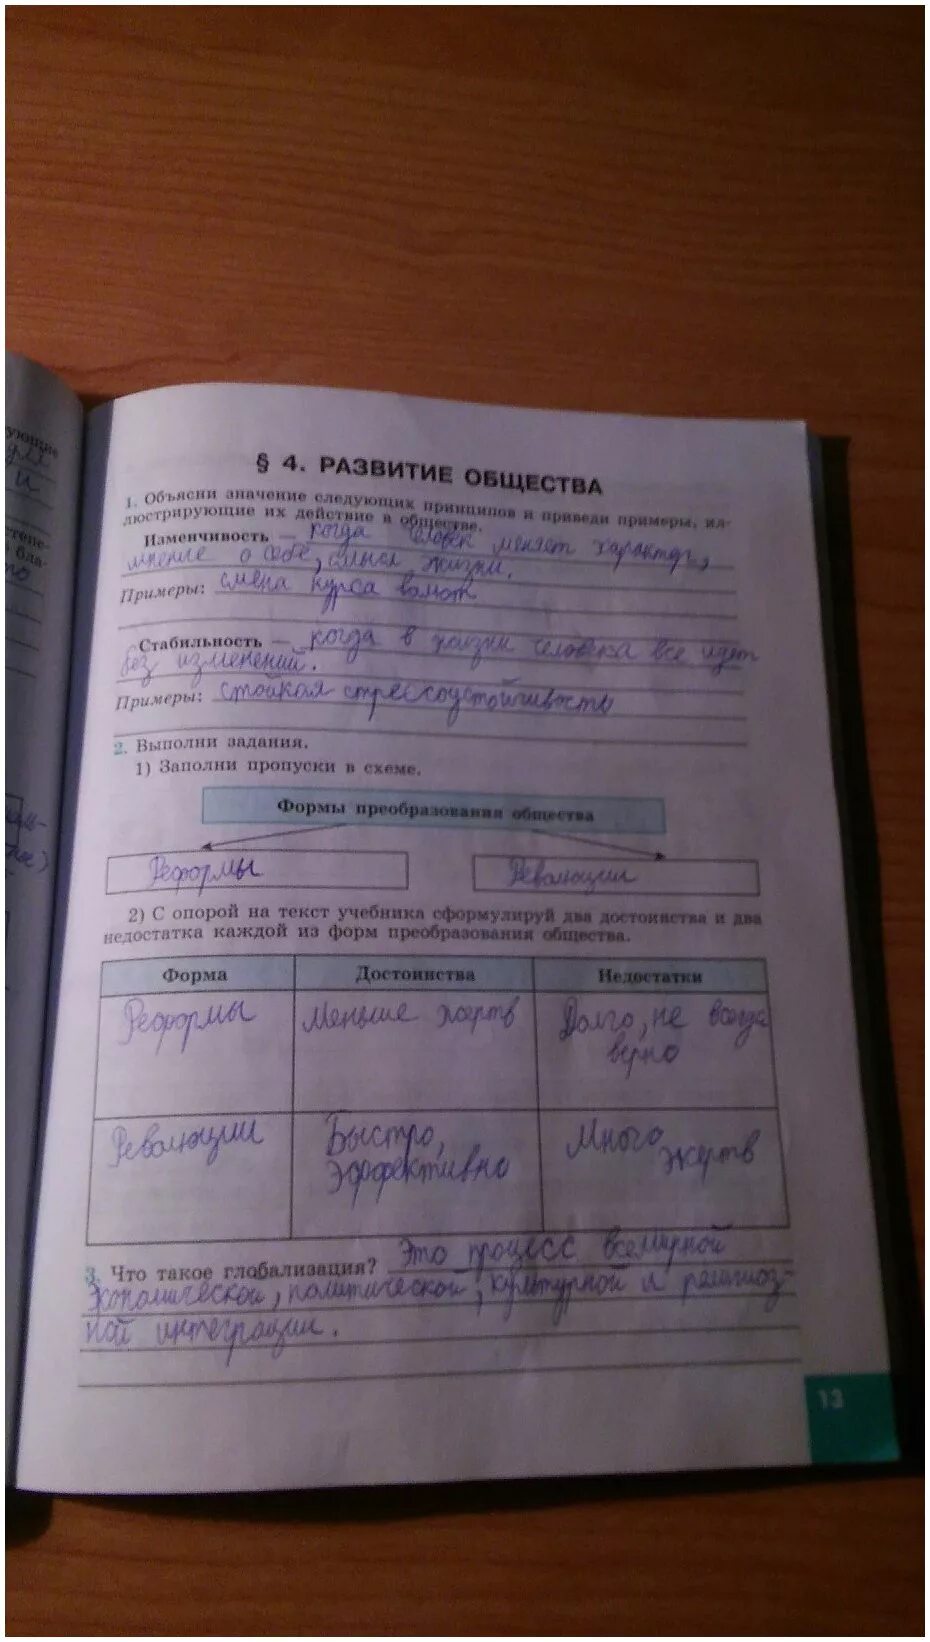 ующие
для
и
степе-
бла-
то
§ 4. РАЗВИТИЕ ОБЩЕСТВА
1. Объясни значение следующих принципов и приведи примеры, ил-
люстрирующие их действие в обществе.
Изменчивость — когда человек меняет характер,
мнение о себе, смысл жизни.
Примеры: смена курса валют
Стабильность — когда в жизни человека все идет
без изменений.
Примеры: стойкая стрессоустойчивость
2. Выполни задания.
1) Заполни пропуски в схеме.
Формы преобразования общества
Реформы Революции
2) С опорой на текст учебника сформулируй два достоинства и два
недостатка каждой из форм преобразования общества.
Форма Достоинства Недостатки
Реформы Меньше жертв Долго, не всегда
верно
Революции Быстро, Много
эффективно жертв
3. Что такое глобализация? Это процесс всемирной
экономической, политической, культурной и религиоз-
ной интеграции.
13